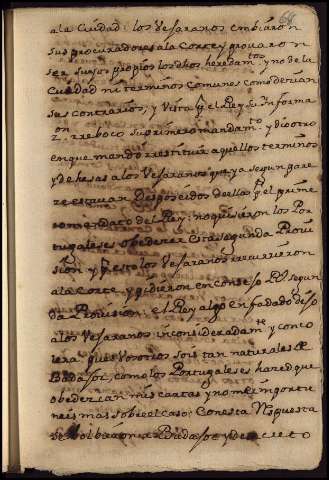 a la Ciudad: los Vejaranos embiaron
sus procuradores a la Corte y provaro n
ser suyos propios los dhos heredamtos y no de la
Ciudad ni terminos comunes como decian
sus contrarios; y Vista pr el Rey su informa
zon rreboco su primero mandamto y dio otro
en que mandó rrestituir aquellos terminos
y dehesas a los Vejaranos que ya segun pare
ze estavan Desposeidos dellos pr el prime
ro mandato del Rey: no quisieron los Por
tugaleses obedezer esta segunda Provi
sion y pr esto los Vejaranos rrecurrieron
a la Corte, y pidieron en consejo Rl segun
da Provision: el Rey algo enfadado dijo
a los Vejaranos inconsideradamte y con co
lera que Vosotros sois tan naturales de
Badajoz, como los Portugaleses haced que
obedezcan mis cartas y no me inportu
neis mas sobre el caso: Con esta Respuesta
se bolbieron a Badajoz y de secreto